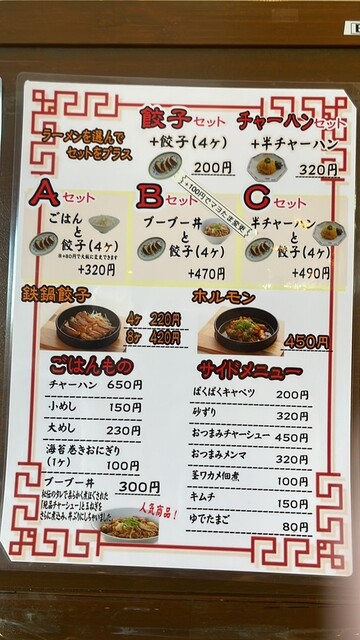 ラーメンを選んで
セットをプラス
餃子セット
+餃子(4ヶ)
200円
チャーハンセット
+半チャーハン
320円
Aセット
ごはん
と
餃子(4ヶ)
※+80円で大飯に変更できます
+320円
Bセット
ブーブー丼
と
餃子(4ヶ)
+470円
+100円でマヨたま変更
Cセット
半チャーハン
と
餃子(4ヶ)
+490円
鉄鍋餃子
4ヶ 220円
8ヶ 420円
ホルモン
450円
ごはんもの
チャーハン 650円
小めし 150円
大めし 230円
海苔巻きおにぎり
(1ヶ) 100円
ブーブー丼 300円
秘伝のタレであらかく煮ほぐされた
「絶品チャーシュー」と玉ねぎを
さらに煮込み、丼ぶりにしちゃいました
人気商品!
サイドメニュー
ぱくぱくキャベツ 200円
砂ずり 320円
おつまみチャーシュー 450円
おつまみメンマ 320円
茎ワカメ佃煮 100円
キムチ 150円
ゆでたまご 80円